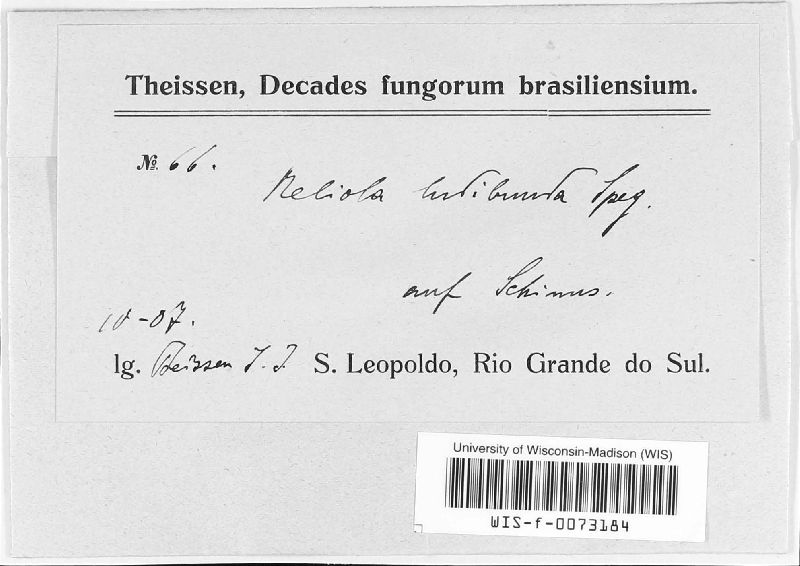 Theissen, Decades fungorum brasiliensium.
№ 66.
Meliola ludibunda Speg.
auf Schinus.
10-07.
lg. Theissen S. J. S. Leopoldo, Rio Grande do Sul.
University of Wisconsin-Madison (WIS)
WIS-f-0073184